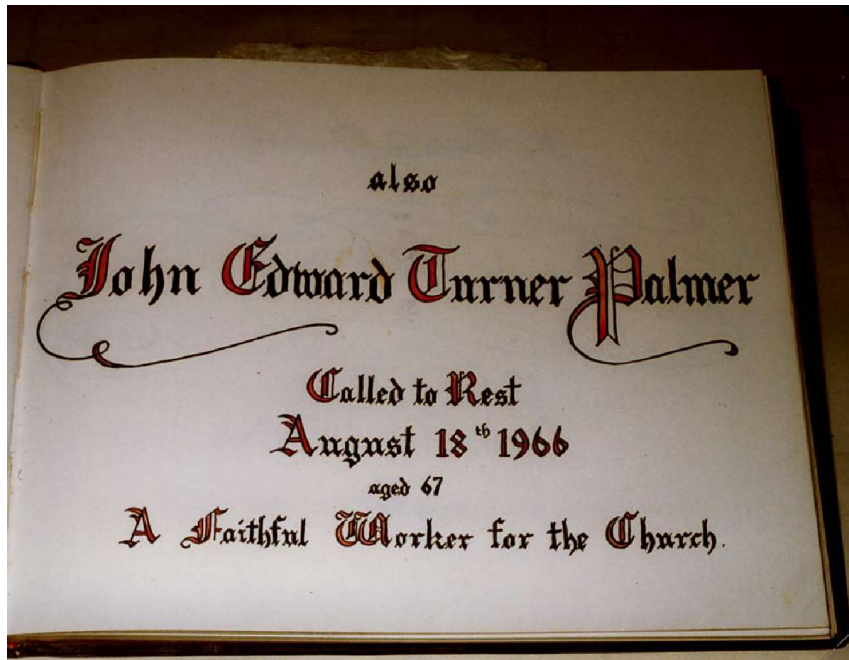 also
John Edward Turner Palmer
Called to Rest
August 18th 1966
aged 67
A Faithful Worker for the Church.